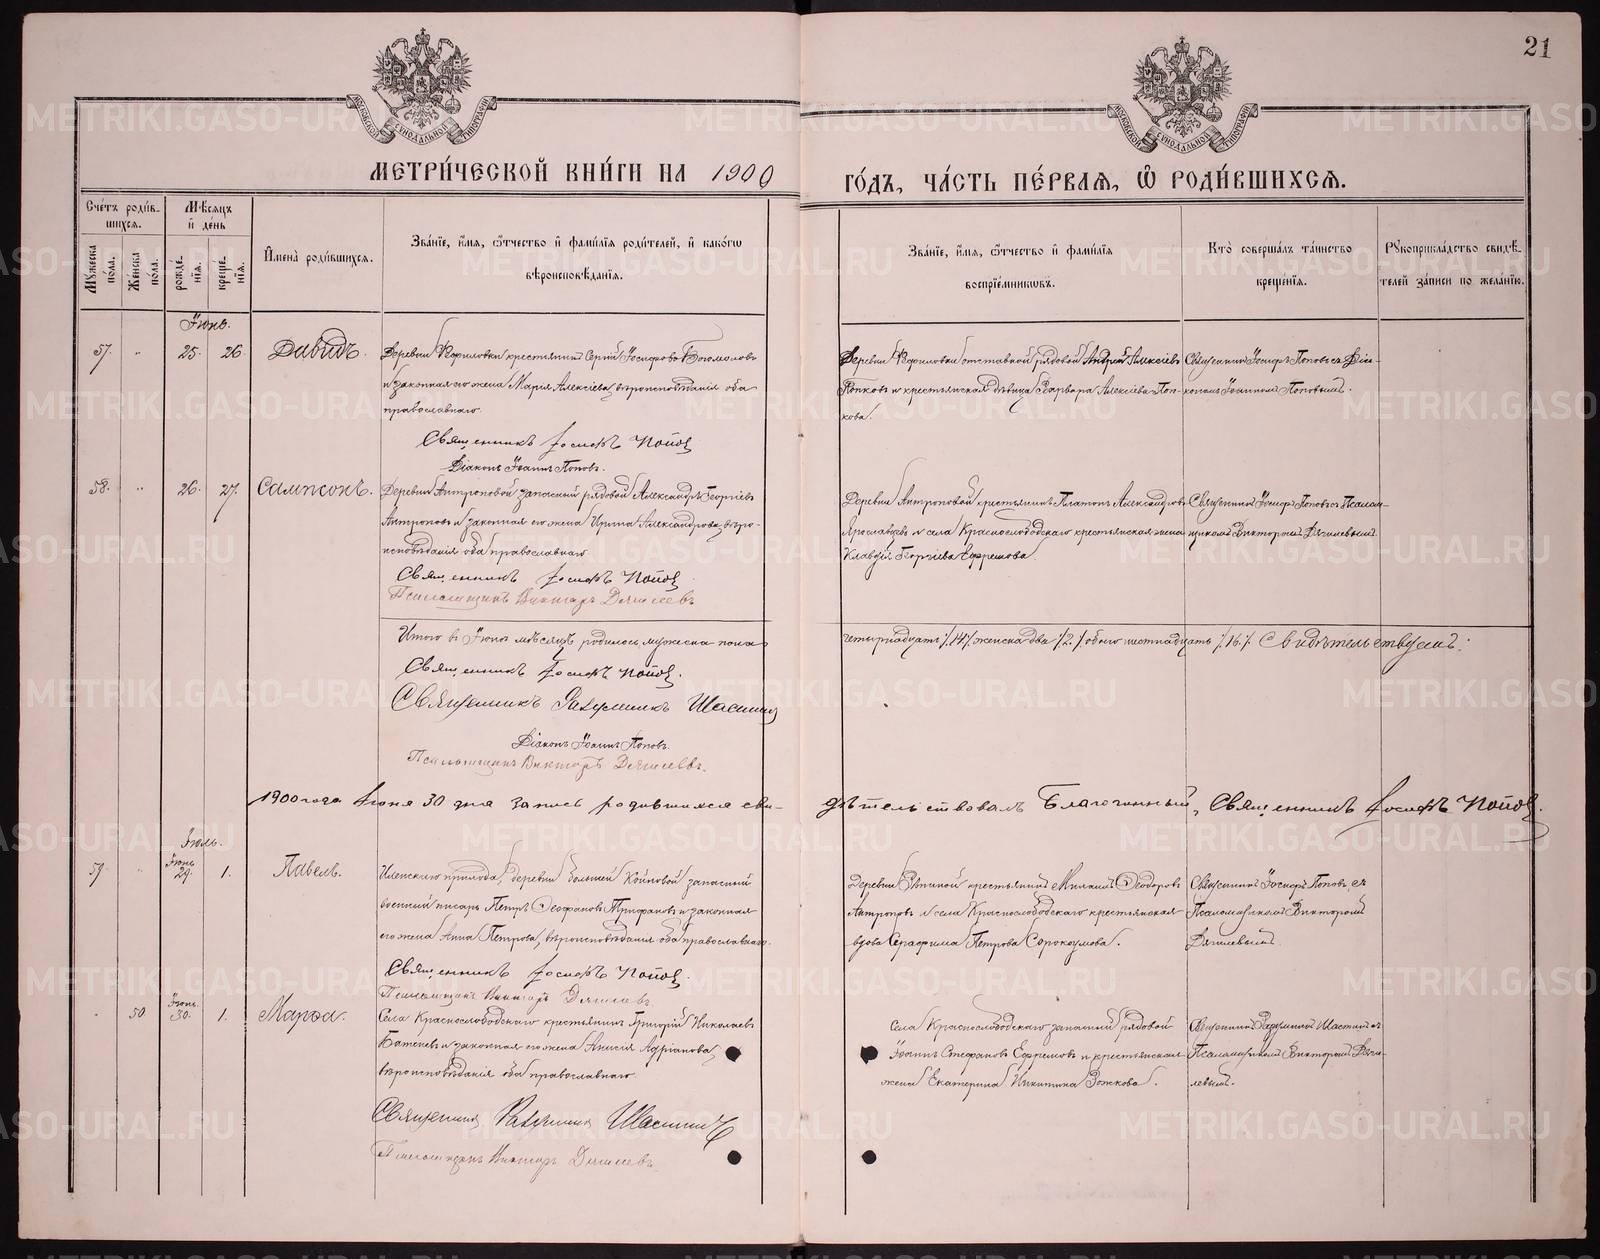 21
МОСКОВСКОЙ СѴНОДАЛЬНОЙ ТИПОГРАФІИ
МОСКОВСКОЙ СѴНОДАЛЬНОЙ ТИПОГРАФІИ
МЕТРИ́ЧЕСКОЙ КНИ́ГИ НА 1900
ГО́ДЪ, ЧА́СТЬ ПЕ́РВАЯ, Ѿ РОДИ́ВШИХСЯ.
Сче́тъ роди́в-
шихся.
Мѣсяцъ
и де́нь
Му́жеска по́ла.
Же́нска по́ла.
рожде́нія.
креще́нія.
Имена̀ роди́вшихся.
Зва́ніе, и́мя, ѻ́тчество и фами́лія роди́телей, и како́гѡ
вѣроисповѣ́данія.
Зва́ніе, и́мя, ѻ́тчество и фами́лія
воспріе́мникѡвъ.
Кто̀ соверша́лъ та́инство
креще́нія.
Рукоприкла́дство свидѣ́-
телей за́писи по жела́нію.
Іюнь.
57. " 25. 26. Давидъ.
Деревни крестьянинъ Сергій Іосифовъ Богомоловъ
и законная его жена Марія Алексіева, вѣроисповѣданія оба
православнаго.
Священникъ Іосифъ Попов
Діаконъ Іоаннъ Поповъ.
Деревни отставной рядовой Андрей Алексіевъ
Попковъ и крестьянская дѣвица Варвара Алексіева Поп-
кова.
Священникъ Іосифъ Поповъ съ Діа-
кономъ Іоанномъ Поповымъ.
58. " 26. 27. Сампсонъ.
Деревни Антроповой запасный рядовой Александръ Георгіевъ
Антроповъ и законная его жена Ирина Александрова, вѣро-
исповѣданія оба православнаго
Священникъ Іосифъ Попов
Псаломщикъ Викторъ Дягилевъ
Деревни Антроповой крестьянинъ Платонъ Александровъ
Ярославцевъ и села Краснослободскаго крестьянская жена
Клавдія Георгіева Ефремова
Священникъ Іосифъ Поповъ съ Псалом-
щикомъ Викторомъ Дягилевымъ.
Итого въ Іюнѣ мѣсяцѣ родилось мужеска пола
четырнадцать /.14/. женска два /2./ обоего шестнадцать /.16./. Свидѣтельствуемъ:
Священникъ Іосифъ Попов.
Священникъ Шастинъ
Діаконъ Іоаннъ Поповъ.
Псаломщикъ Викторъ Дягилевъ.
1900 года Іюня 30 дня запись родившихся сви-
дѣтельствовалъ Благочинный, Священникъ Іосифъ Попов.
Іюль.
59. " Іюнь 29. 1. Павелъ.
прихода, деревни большей запасный
военный писарь Петръ Ѳеофановъ Трифановъ и законная
его жена Анна Петрова, вѣроисповѣданія оба православнаго.
Священникъ Іосифъ Попов.
Псаломщикъ Викторъ Дягилевъ.
Деревни крестьянинъ Ѳеодоровъ
Антроповъ и села Краснослободскаго крестьянская
вдова Серафима Петрова Сорокоумова.
Священникъ Іосифъ Поповъ, съ
Псаломщикомъ Викторомъ
Дягилевымъ.
50 Іюнь 30. 1. Марѳа.
Села Краснослободскаго крестьянинъ Григорій Николаевъ
и законная его жена Анисія Адріанова,
вѣроисповѣданія оба православнаго.
Священникъ Шастинъ
Псаломщикъ Викторъ Дягилевъ.
Села Краснослободскаго запасный рядовой
Іоаннъ Стефановъ Ефремовъ и крестьянская
жена Екатерина Никитина
Священникъ Шастинъ съ
Псаломщикомъ Викторомъ Дяги-
левымъ.
METRIKI.GASO-URAL.RU